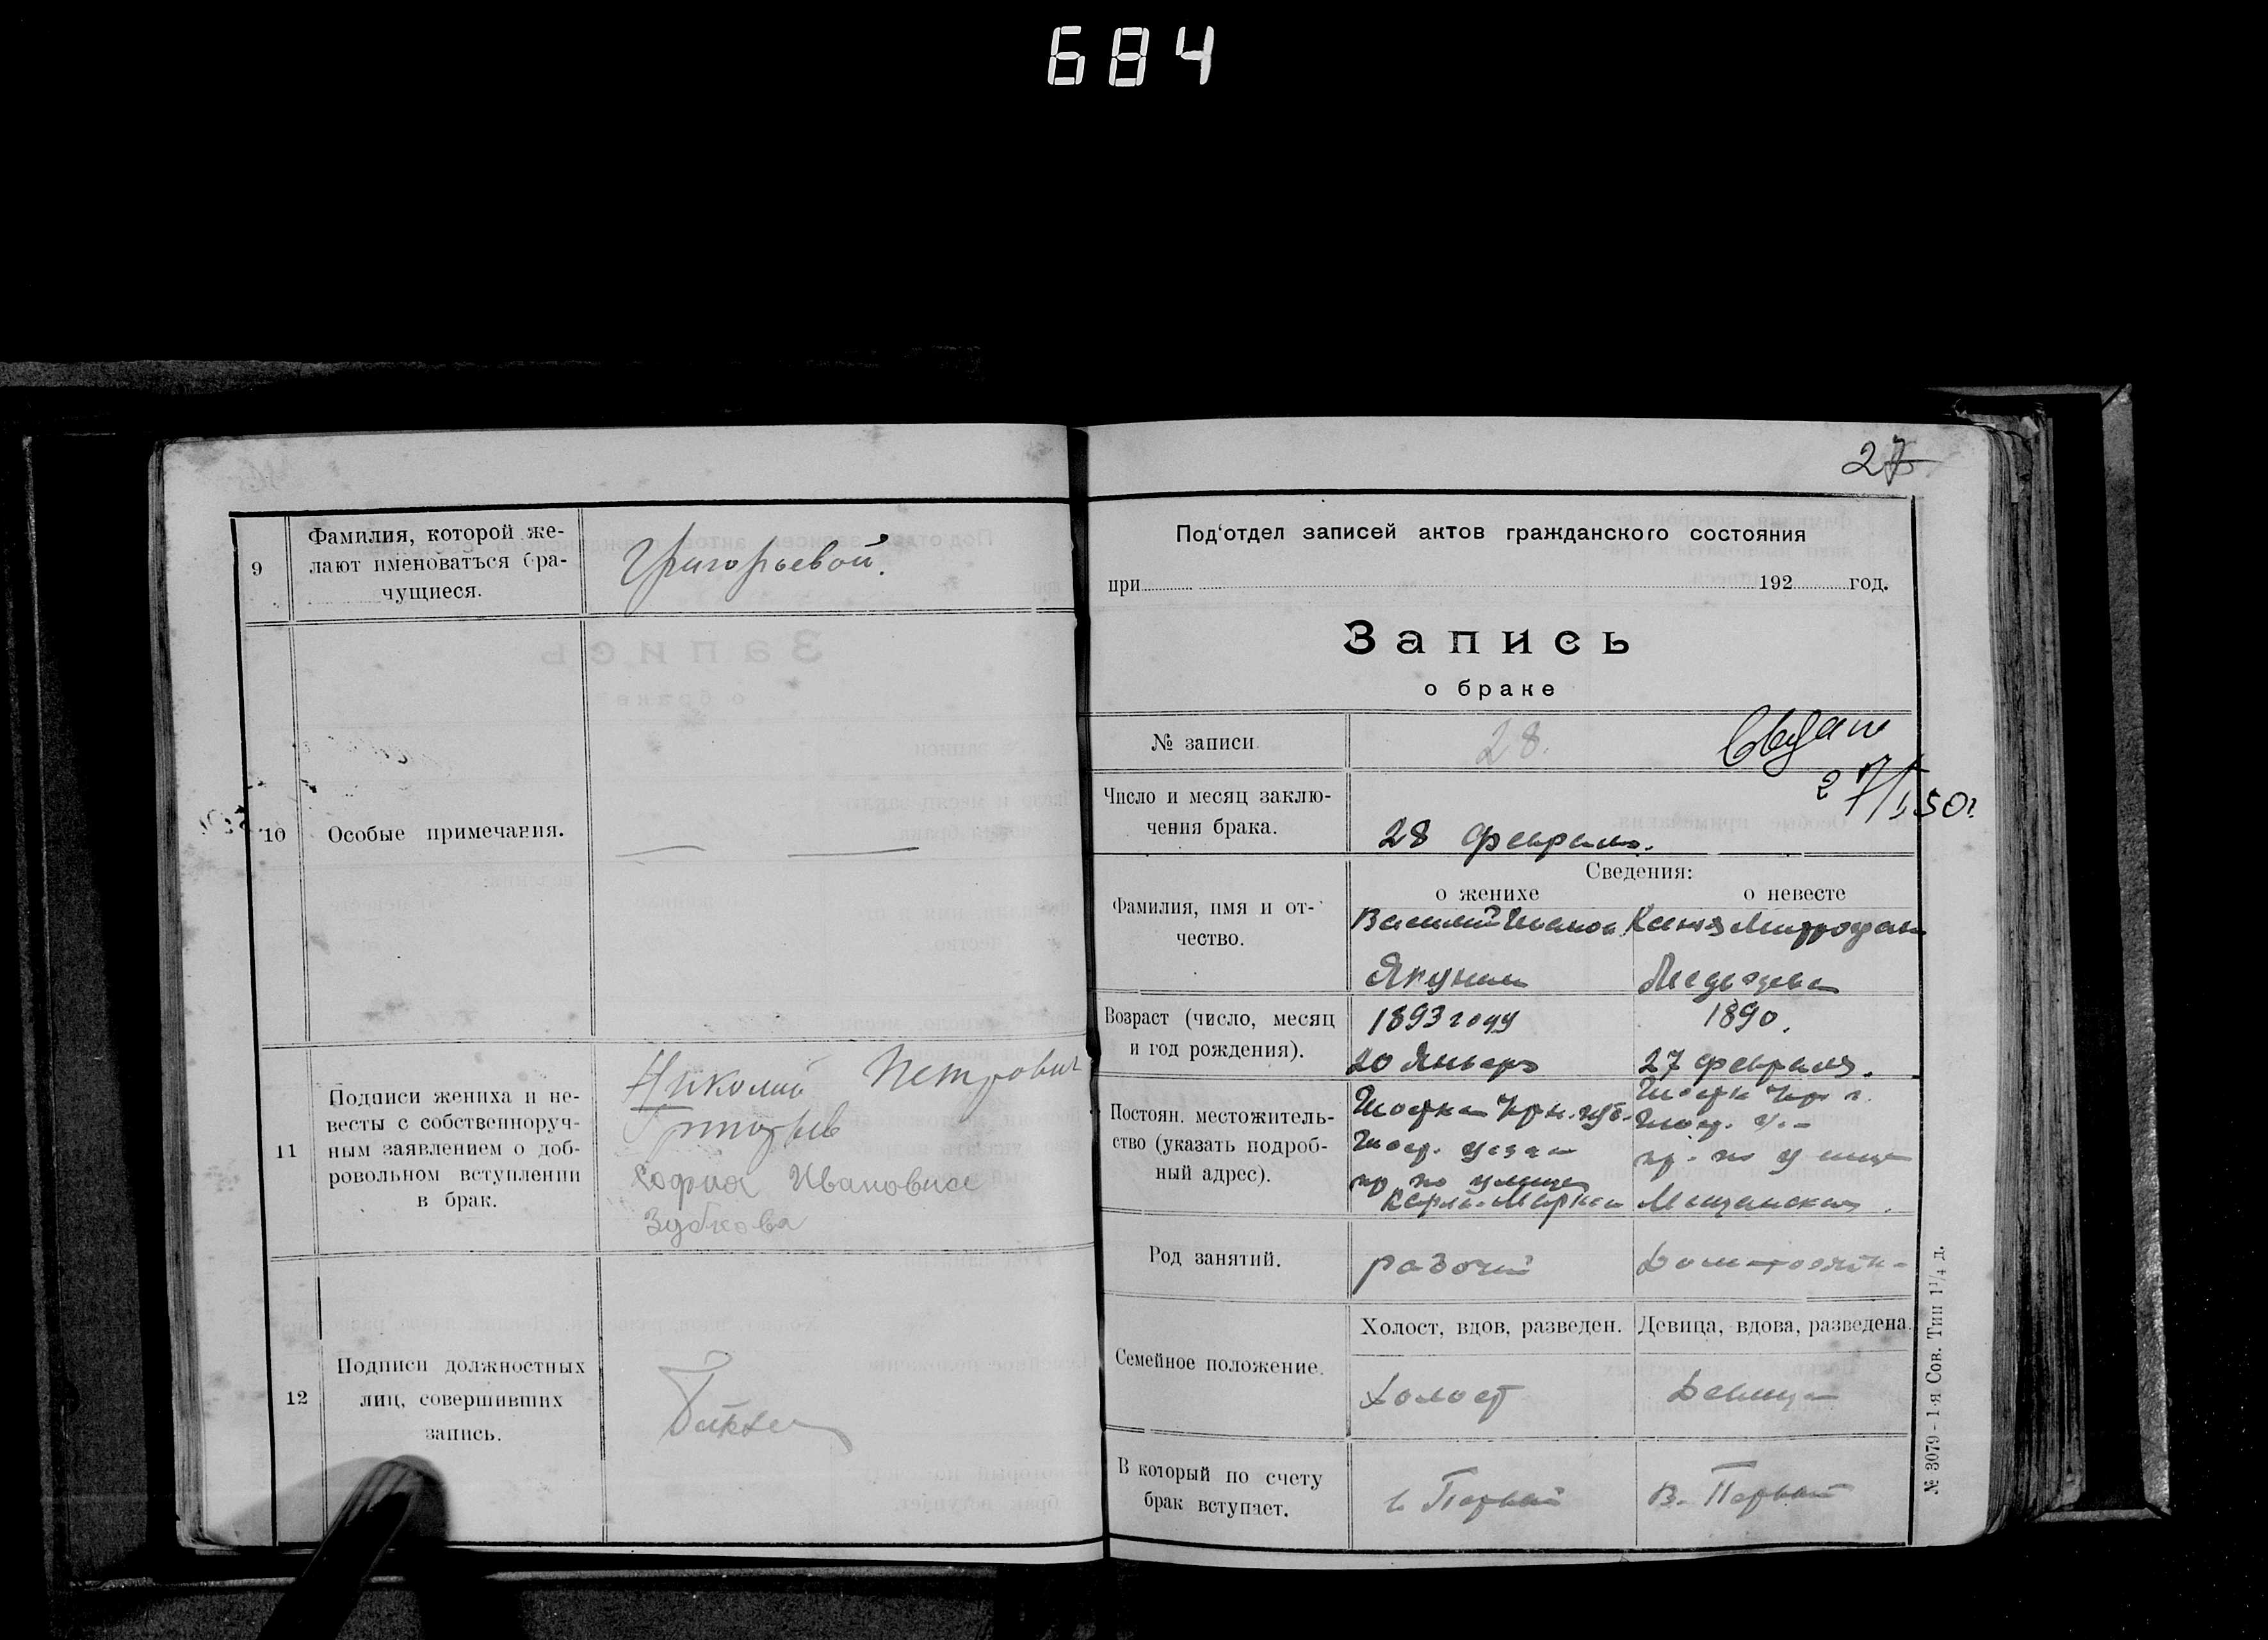 684
9
Фамилия, которой же-
лают именоваться бра-
чущиеся.
Григорьевой.
10
Особые примечания.
11
Подписи жениха и не-
весты с собственноруч-
ным заявлением о доб-
ровольном вступлении
в брак.
Николай Петрович
Григорьев
София Ивановна
Зубкова
12
Подписи должностных
лиц, совершивших
запись.
27
Под'отдел записей актов гражданского состояния
при 192 год.
Запись
о браке
№ записи
28.
Число и месяц заклю-
чения брака.
28 февраля.
Сведения:
о женихе
о невесте
Фамилия, имя и от-
чество.
Василий Иванов
Якунин
Ксения Митрофан
Возраст (число, месяц
и год рождения).
1893 году
20 Январь
1890.
27 февраля.
Постоян. местожитель-
ство (указать подроб-
ный адрес).
Шостка
уезда
по улице
Карла-Маркса
Мещанская
Род занятий.
рабочий
Семейное положение.
Холост, вдов, разведен.
Девица, вдова, разведена.
Холост
Девица
В который по счету
брак вступает.
в Первый
В. Первый
№ 3079 - 1-я Сов. Тип 1 1/4 д.